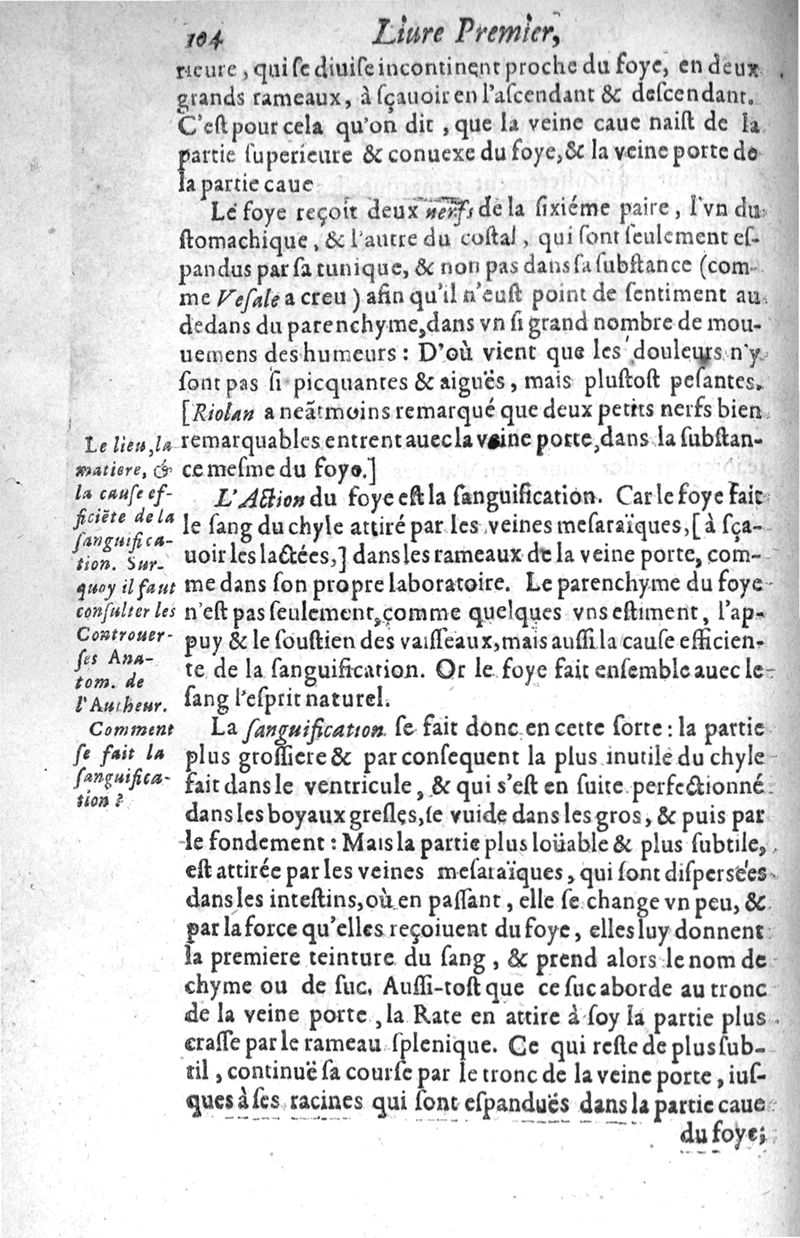 104 Liure Premier,
rieure, qui se diuise incontinent proche du foye, en deux
grands rameaux, à sçauoir en l'ascendant & descendant.
C'est pour cela qu'on dit, que la veine caue naist de la
partie superieure & conuexe du foye, & la veine porte de
la partie caue
Le foye reçoit deux nerfs de la sixiéme paire, l'vn du
stomachique, & l'autre du costal, qui sont seulement es-
pandus par sa tunique, & non pas dans sa substance (com-
me Vesale a creu) afin qu'il n'eust point de sentiment au
dedans du parenchyme, dans vn si grand nombre de mou-
uemens des humeurs: D'où vient que les douleurs n'y
sont pas si picquantes & aiguës, mais plustost pesantes.
[Riolan a neãtmoins remarqué que deux petits nerfs bien
remarquables entrent auec la veine porte, dans la substan-
ce mesme du foye.]
L'Action du foye est la sanguification. Car le foye fait
le sang du chyle attiré par les veines mesaraïques, [à sça-
uoir les lactées,] dans les rameaux de la veine porte, com-
me dans son propre laboratoire. Le parenchyme du foye
n'est pas seulement, comme quelques vns estiment, l'ap-
puy & le soustien des vaisseaux, mais aussi la cause efficien-
te de la sanguification. Or le foye fait ensemble auec le
sang l'esprit naturel.
Le lieu, la
matiere, &
la cause ef-
ficiẽte de la
sanguifica-
tion. Sur-
quoy il faut
consulter les
Controuer-
ses Ana-
tom. de
l'Autheur.
La sanguification se fait donc en cette sorte: la partie
plus grossiere & par consequent la plus inutile du chyle
fait dans le ventricule, & qui s'est en suite perfectionné
dans les boyaux gresles, se vuide dans les gros, & puis par
le fondement: Mais la partie plus loüable & plus subtile,
est attirée par les veines mesaraïques, qui sont dispersées
dans les intestins, où en passant, elle se change vn peu, &
par la force qu'elles reçoiuent du foye, elles luy donnent
la premiere teinture du sang, & prend alors le nom de
chyme ou de suc. Aussi-tost que ce suc aborde au tronc
de la veine porte, la Rate en attire à soy la partie plus
crasse par le rameau splenique. Ce qui reste de plus sub-
til, continuë sa course par le tronc de la veine porte, ius-
ques à ses racines qui sont espanduës dans la partie caue
Comment
se fait la
sanguifica-
tion?
du foye;